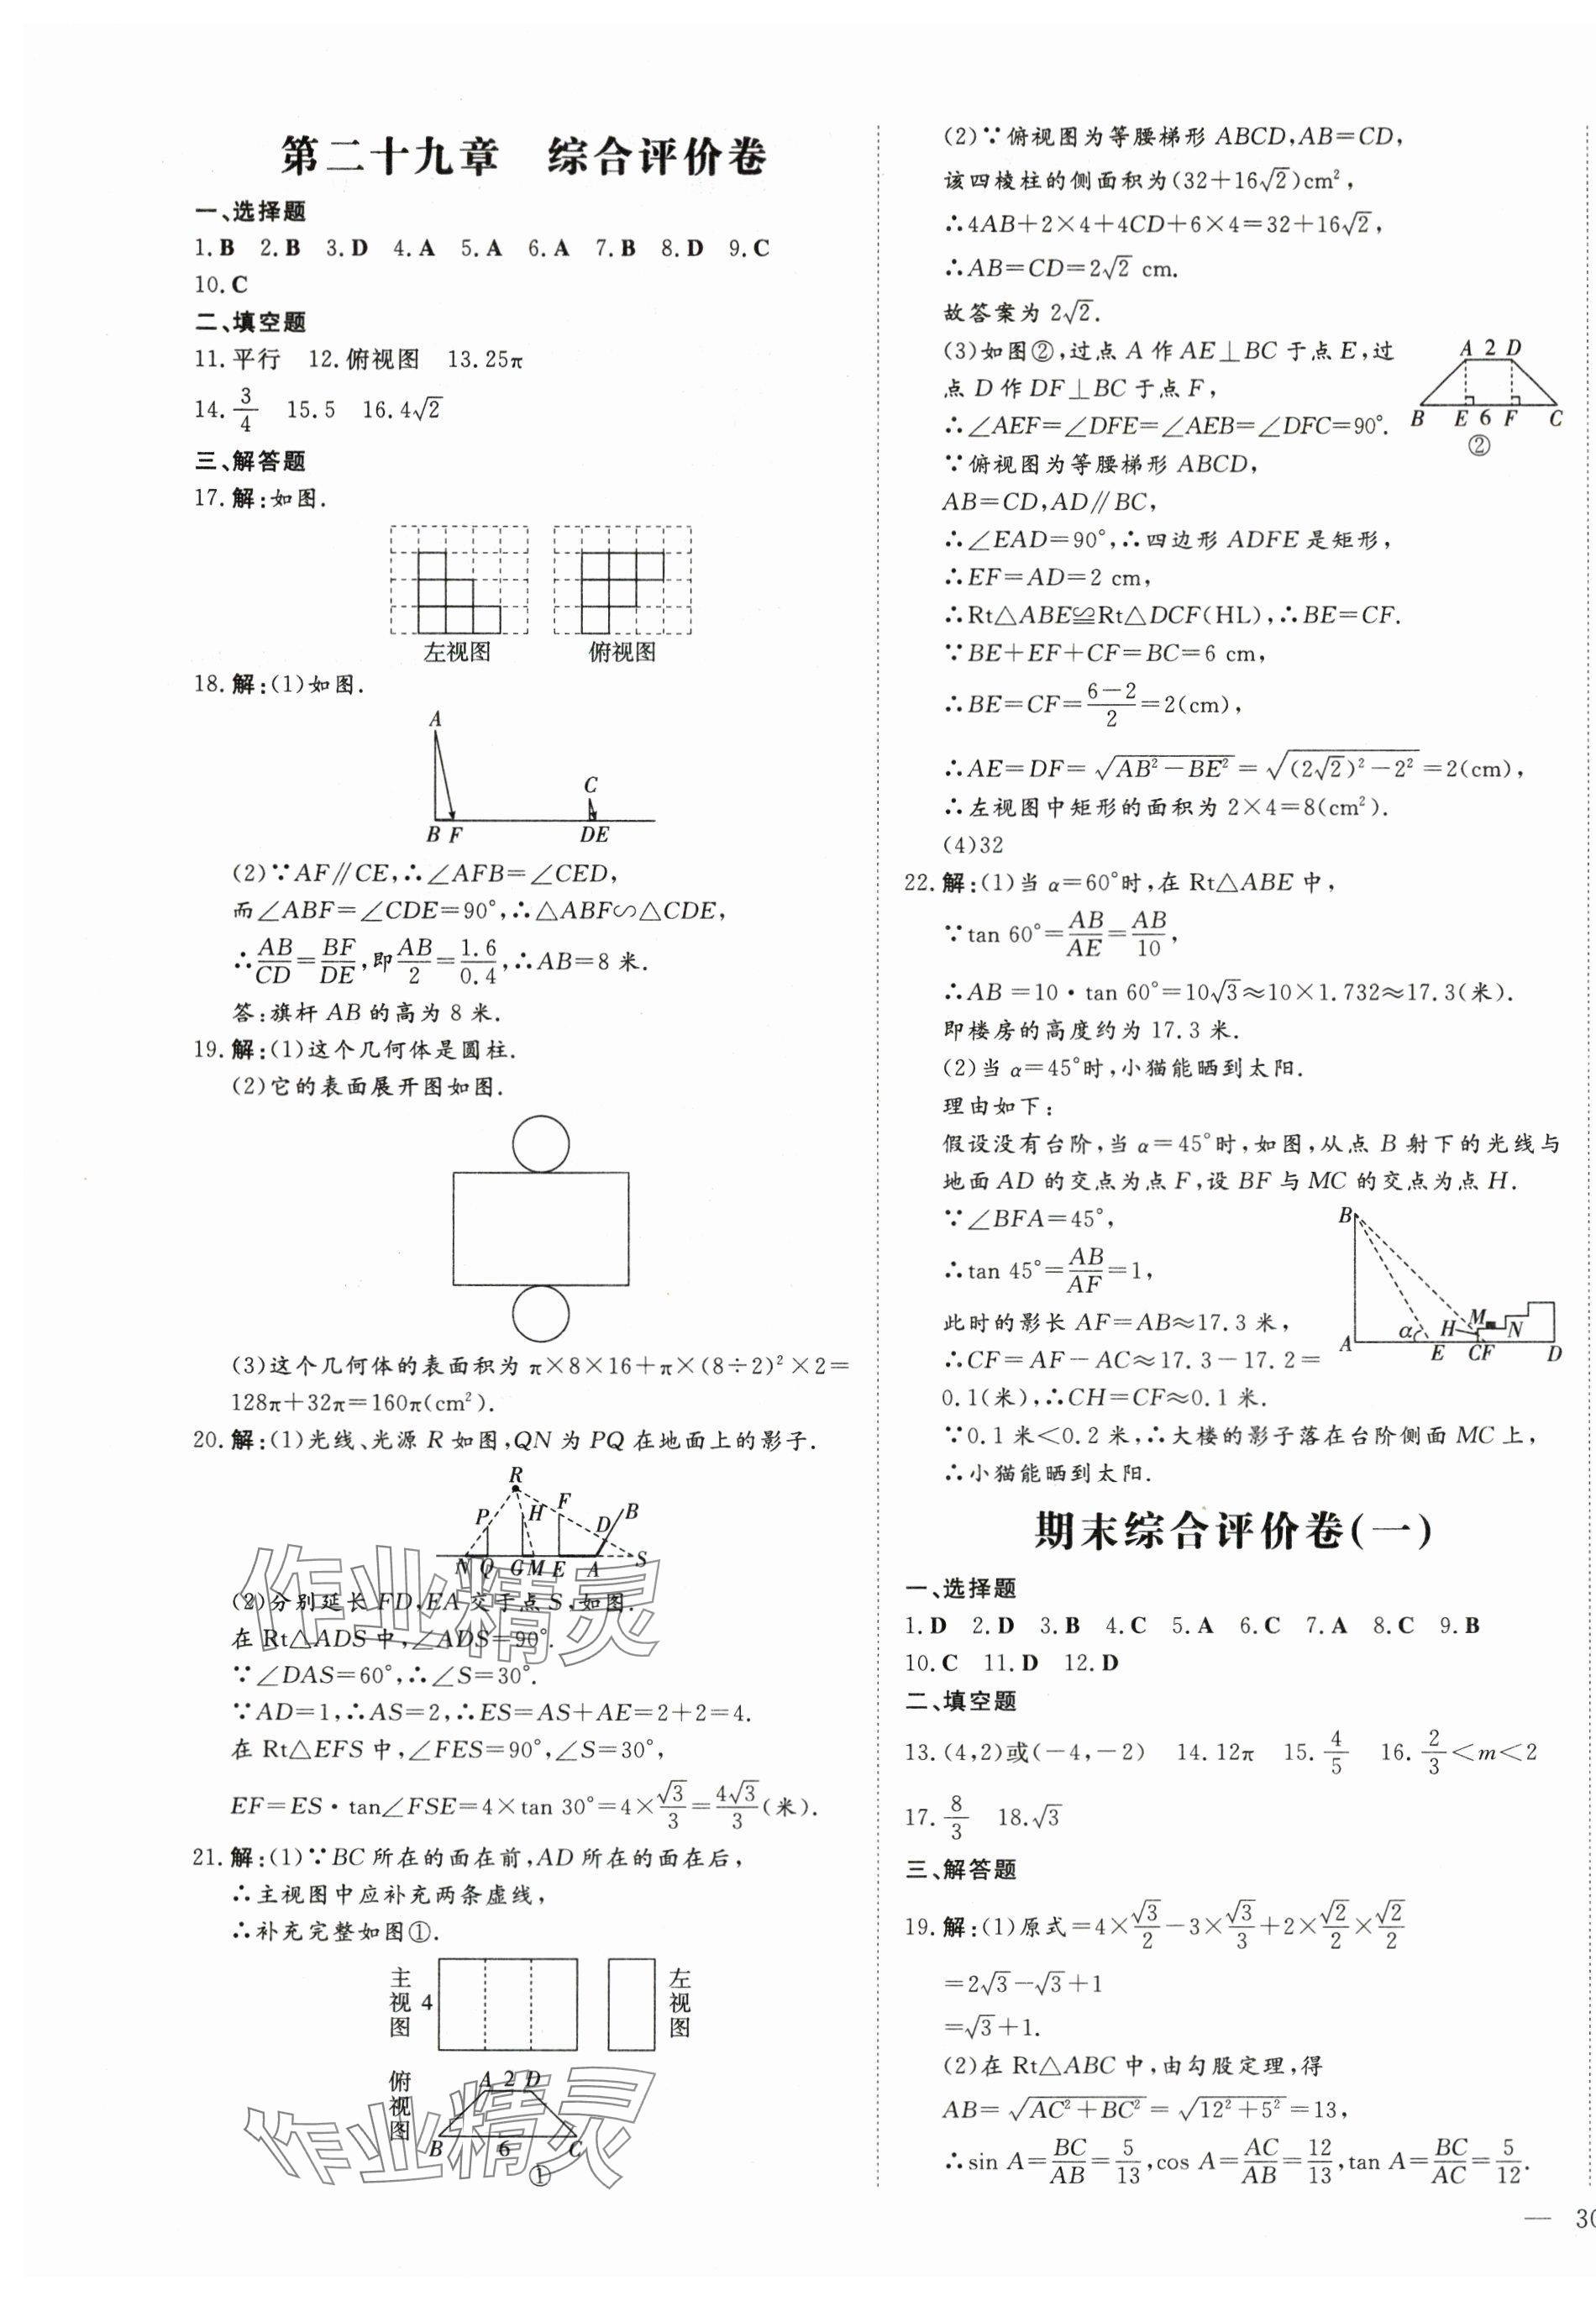 第二十九章　综合评价卷
一、选择题
1.B 2.B 3.D 4.A 5.A 6.A 7.B 8.D 9.C
10.C
二、填空题
11.平行 12.俯视图 13.25π
14.3/4 15.5 16.4√2
三、解答题
17.解:如图.
左视图 俯视图
18.解:(1)如图.
A
C
B F DE
(2)∵AF∥CE,∴∠AFB=∠CED,
而∠ABF=∠CDE=90°,∴△ABF∽△CDE,
∴AB/CD=BF/DE,即AB/2=1.6/0.4,∴AB=8 米.
答:旗杆 AB 的高为 8 米.
19.解:(1)这个几何体是圆柱.
(2)它的表面展开图如图.
(3)这个几何体的表面积为 π×8×16+π×(8÷2)²×2=
128π+32π=160π(cm²).
20.解:(1)光线、光源 R 如图,QN 为 PQ 在地面上的影子.
R
P H F D B
N Q G M E A S
(2)分别延长 FD,EA 交于点 S,如图.
在 Rt△ADS 中,∠ADS=90°.
∵∠DAS=60°,∴∠S=30°.
∵AD=1,∴AS=2,∴ES=AS+AE=2+2=4.
在 Rt△EFS 中,∠FES=90°,∠S=30°,
EF=ES·tan∠FSE=4×tan 30°=4×√3/3=4√3/3(米).
21.解:(1)∵BC 所在的面在前,AD 所在的面在后,
∴主视图中应补充两条虚线,
∴补充完整如图①.
主视图 4 左视图
俯视图 A 2 D
B 6 C
①
(2)∵俯视图为等腰梯形 ABCD,AB=CD,
该四棱柱的侧面积为(32+16√2)cm²,
∴4AB+2×4+4CD+6×4=32+16√2,
∴AB=CD=2√2 cm.
故答案为 2√2.
(3)如图②,过点 A 作 AE⊥BC 于点 E,过
点 D 作 DF⊥BC 于点 F,
∴∠AEF=∠DFE=∠AEB=∠DFC=90°.
A 2 D
B E 6 F C
②
∵俯视图为等腰梯形 ABCD,
AB=CD,AD∥BC,
∴∠EAD=90°,∴四边形 ADFE 是矩形,
∴EF=AD=2 cm,
∴Rt△ABE≌Rt△DCF(HL),∴BE=CF.
∵BE+EF+CF=BC=6 cm,
∴BE=CF=(6-2)/2=2(cm),
∴AE=DF=√(AB²-BE²)=√((2√2)²-2²)=2(cm),
∴左视图中矩形的面积为 2×4=8(cm²).
(4)32
22.解:(1)当 α=60°时,在 Rt△ABE 中,
∵tan 60°=AB/AE=AB/10,
∴AB=10·tan 60°=10√3≈10×1.732≈17.3(米).
即楼房的高度约为 17.3 米.
(2)当 α=45°时,小猫能晒到太阳.
理由如下:
假设没有台阶,当 α=45°时,如图,从点 B 射下的光线与
地面 AD 的交点为点 F,设 BF 与 MC 的交点为点 H.
∵∠BFA=45°,
∴tan 45°=AB/AF=1,
此时的影长 AF=AB≈17.3 米,
∴CF=AF-AC≈17.3-17.2=
0.1(米),∴CH=CF≈0.1 米.
B
α H M N
A E CF D
∵0.1 米<0.2 米,∴大楼的影子落在台阶侧面 MC 上,
∴小猫能晒到太阳.
期末综合评价卷(一)
一、选择题
1.D 2.D 3.B 4.C 5.A 6.C 7.A 8.C 9.B
10.C 11.D 12.D
二、填空题
13.(4,2)或(-4,-2) 14.12π 15.4/5 16.2/3<m<2
17.8/3 18.√3
三、解答题
19.解:(1)原式=4×√3/2-3×√3/3+2×√2/2×√2/2
=2√3-√3+1
=√3+1.
(2)在 Rt△ABC 中,由勾股定理,得
AB=√(AC²+BC²)=√(12²+5²)=13,
∴sin A=BC/AB=5/13,cos A=AC/AB=12/13,tan A=BC/AC=5/12.
— 30
作业精灵
作业精灵